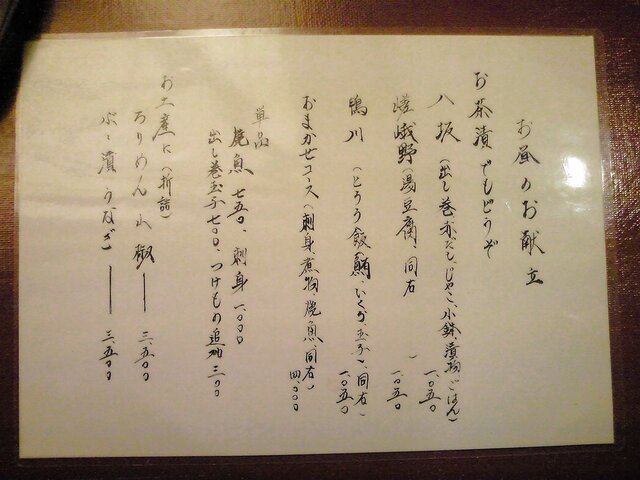 お昼のお献立
お茶漬でもどうぞ
八坂（出し巻、赤だし、じゃこ、小鉢、漬物、ごはん）一、〇五〇
嵯峨野（湯豆腐、同右）一、〇五〇
鴨川（とろろ飯、鮪、いくら、玉子、同右）一、〇五〇
おまかせコース（刺身、煮物、焼魚、同右）四、〇〇〇
単品
焼魚 七五〇、刺身 一、〇〇〇
出し巻玉子 七〇〇、つけもの追加 三〇〇
お土産に（折詰）
ちりめん山椒 ― 三、五〇〇
ぶぶ漬うなぎ ― 三、五〇〇